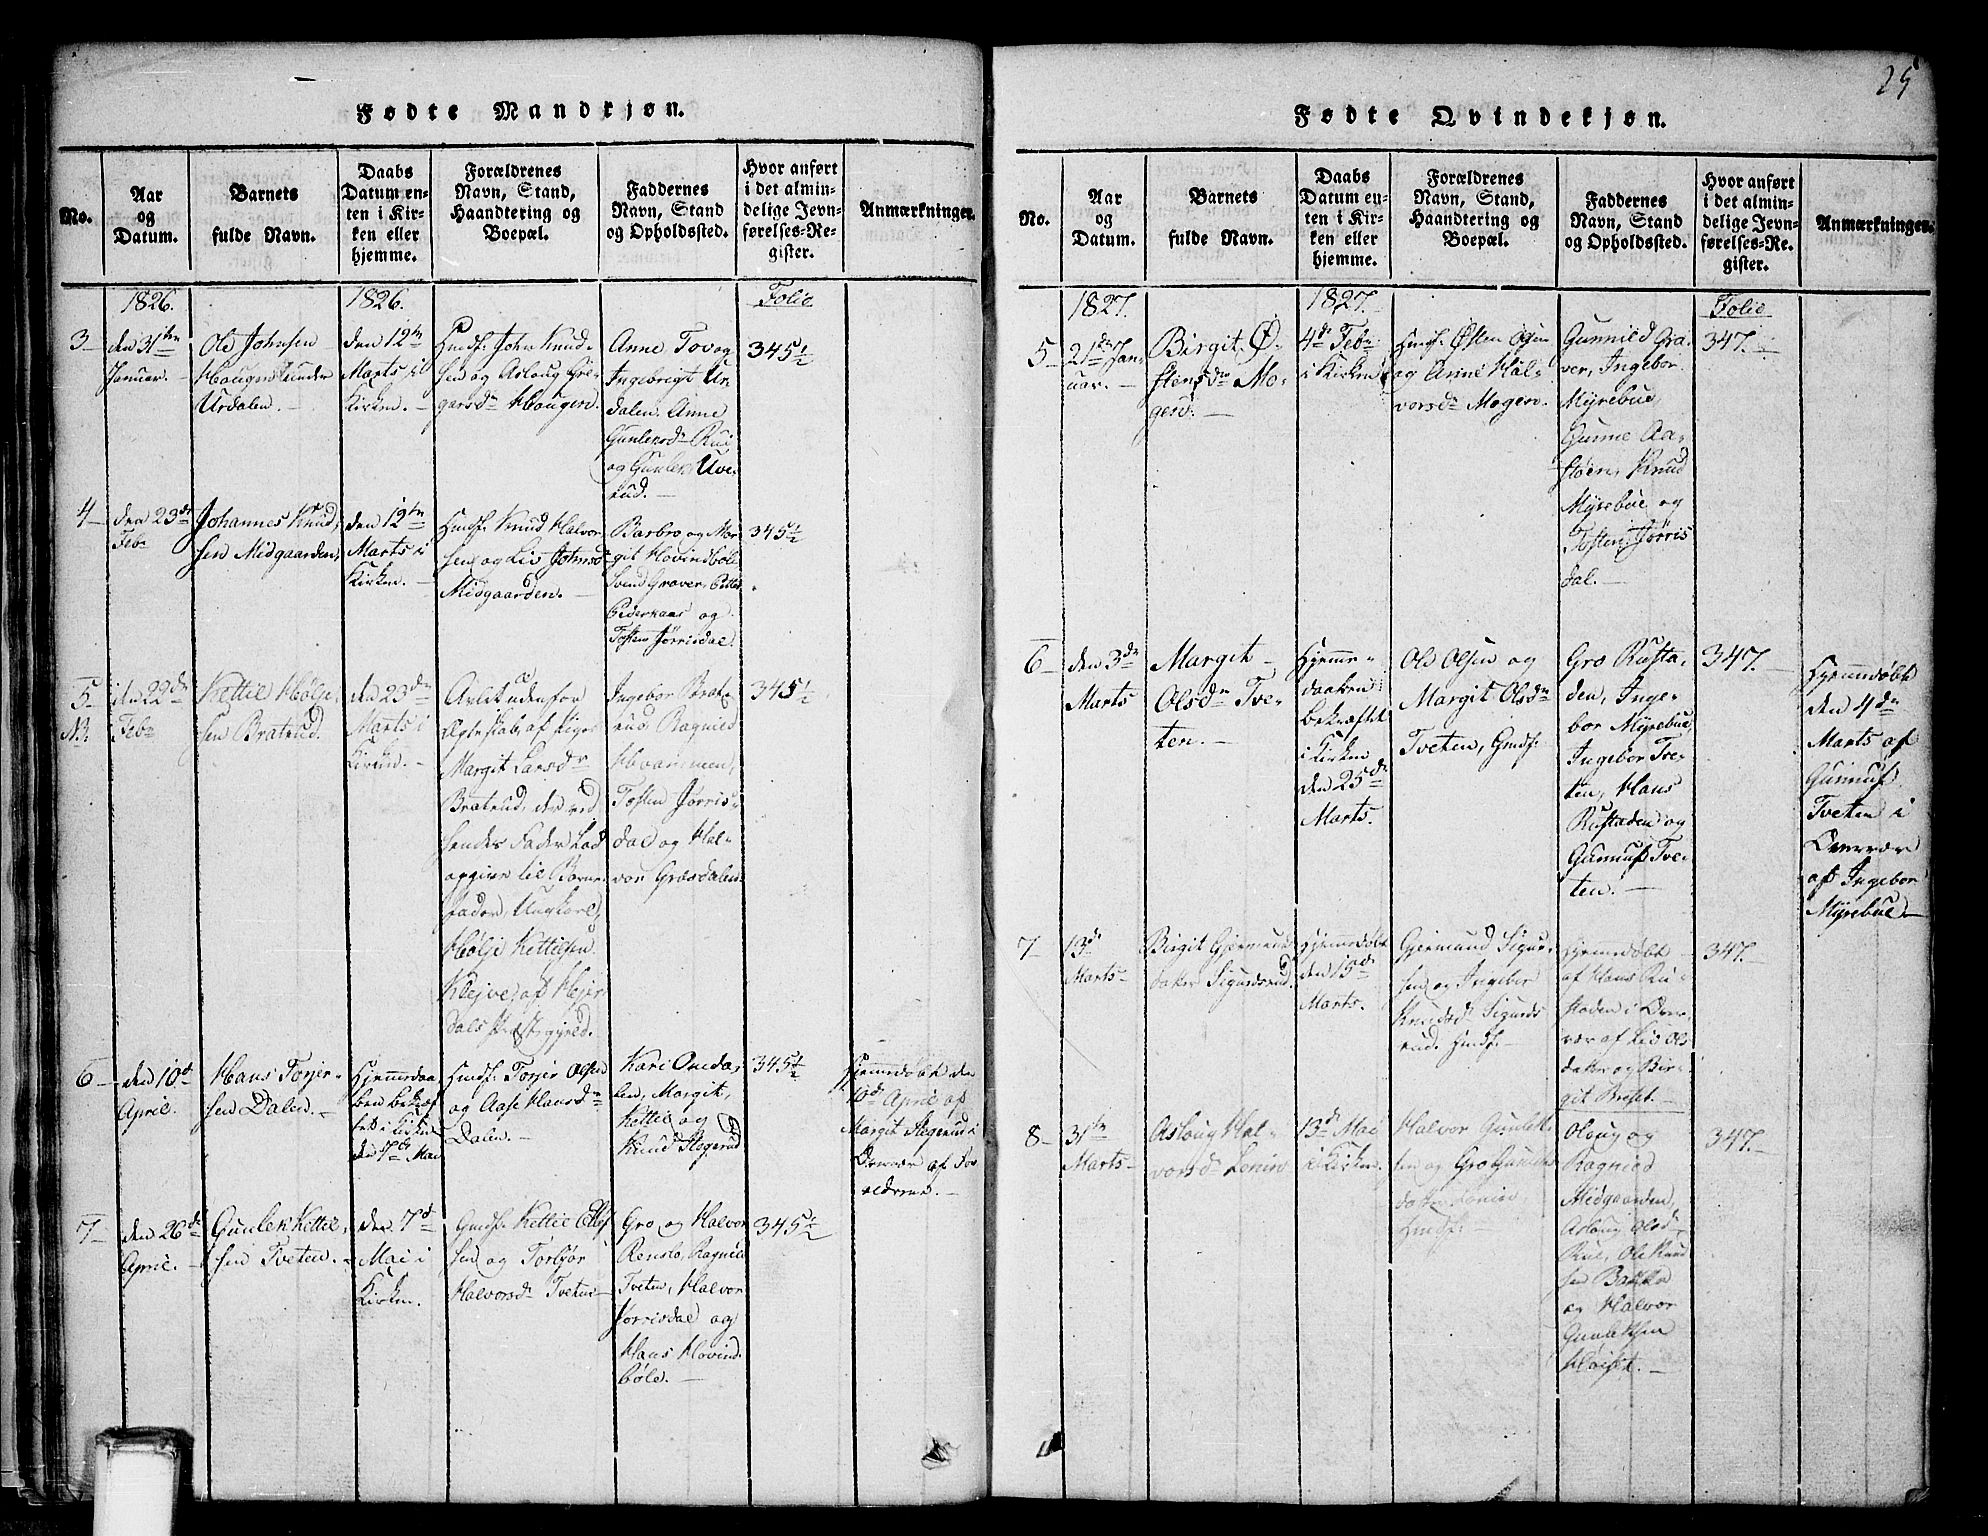 25
Fødte Mandkjøn.
No.
Aar
og
Datum.
Barnets
fulde Navn.
Daabs
Datum en-
ten i Kir-
ken eller
hjemme.
Forældrenes
Navn, Stand,
Haandtering og
Boepæl.
Faddernes
Navn, Stand
og Opholdssted.
Hvor anført
i det almin-
delige Jevn-
førelses-Re-
gister.
Anmærkninger.
1826.
1826.
Folio
3
den 31te
Januar.
Ole Johnsen
Haugen under
Urdalen.
den 12te
Marts i
Kirken.
Huusf: John Knud-
sen og Asloug Gre-
garsdr Haugen.
Anne Tov og
Ingebrigt Ur-
dalen, Anne
Gunleksdr Rui
og Gunlek Uve-
rud.
345½
4
den 23de
Febr
Johannes Knud-
sen Midgaarden,
den 12te
Marts i
Kirken.
Huusf: Knud Halvor-
sen og Liv Johnsdr
Midgaarden.
Barbro og Mar-
git Hovindbøle
Svend Graver,
og
Tosten Jørrisdal.
345½
5
NB.
den 22de
Febr
Kettil Hølje-
sen Bratrud.
den 23de
Marts i
Kirken.
Avlet udenfor
Ægteskab, af Pige
Margit Larsdr
Bratrud, der ved
hendes Fader Lod
opgive til Barne-
fader, Ungkarl,
Hølje Kettilsen
Klejve, af Hjer-
dals Præstegjeld.
Ingebor Brat-
rud Ragnild
Hvammen,
Tosten Jørris-
dal og Hal-
vor Græsdalen.
345½
6
den 10de
April.
Hans Torjer-
sen Dalen.
Hjemmedaa-
ben bekræf-
tet i Kirken
den 7de Mai
Huusf: Torjer Olsen
og Aase Hansdr
Dalen.
Kari Omda-
len, Margit,
Kettil og
Knud Stogerud
345½
Hjemmedøbt den
10de April af
Margit Stogerud i
Overvær af For-
ældrene.
7
den 26de
April.
Gunlek Kettil-
sen Tveten.
den 7de
Mai i
Kirken.
Gmdsf: Kettil Ellef-
sen og Torbjør
Halvorsdr Tveten
Gro og Halvor
Renslo, Ragnild
Tveten, Halvor
Jørrisdal og
Hans Hovind-
bøle.
345½
Fødte Qvindekjøn.
No.
Aar
og
Datum.
Barnets
fulde Navn.
Daabs
Datum en-
ten i Kir-
ken eller
hjemme.
Forældrenes
Navn, Stand,
Haandtering og
Boepæl.
Faddernes
Navn, Stand
og Opholdssted.
Hvor anført
i det almin-
delige Jevn-
førelses-Re-
gister.
Anmærkninger.
1827.
1827.
Folio
5
21de Jan-
uar.
Birgit Ø-
stensdr Mo-
gen.
4de Febr
i Kirken
Huusf: Østen
og Anne Hal-
vorsdr Mogen.
Gunnild Gra-
ver, Ingebor
Myrebue
Gunne Aa-
støen, Knud
Myrebue og
Tosten Jørris
dal.
347.
6
den 3de
Marts
Margit
Olsdr Tve-
ten.
Hjemme-
daaben
bekræftet
i Kirken
den 25de
Marts.
Ole Olsen og
Margit Olsdr
Tveten, Gmdsf:
Gro Rusta-
den, Inge-
bor Myrebue,
Ingebor Tve-
ten, Hans
Rustaden og
Gunnuf Tve-
ten.
347.
Hjemmedøbt
den 4de
Marts af
Gunnuf
Tveten i
Overvær
af Ingebor
Myrebue
7
13de
Marts
Birgit Gjermunds-
datter Sigurdsrud.
Hjemmedøbt
den 15de
Marts.
Gjermund Sigur-
sen og Ingebor
Knudsd Sigurds
rud. Huusf:
Hjemmedøbt
af Hans Ru-
staden i Over-
vær af Liv Ols-
datter og Bir-
git
347.
8
31te
Marts
Asloug Hal-
vorsdr
13de Mai
i Kirken.
Halvor Gunlek-
sen og Gro Gunleks-
datter
Huusf:
Oloug og
Ragnild
Midgaarden,
Asloug Olsdr
Rui, Ole Knud-
sen Bakka
og Halvor
Gunleksen
347.